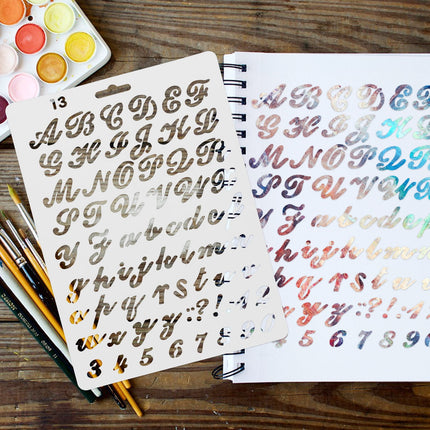 13
A B C D E F
G H I J K L
M N O P Q R
S T U V W X
Y Z a b c d e
g h i j k l m n
o p q r s t u
w x y z : ? !
3 4 5 6 7 8 9 0
A B C D E
G H I J K
M N O P Q R
S T U V W
a b c d e f
g h i j k l m n
q r s t u
x y z : ? !
4 5 6 7 8 9 0